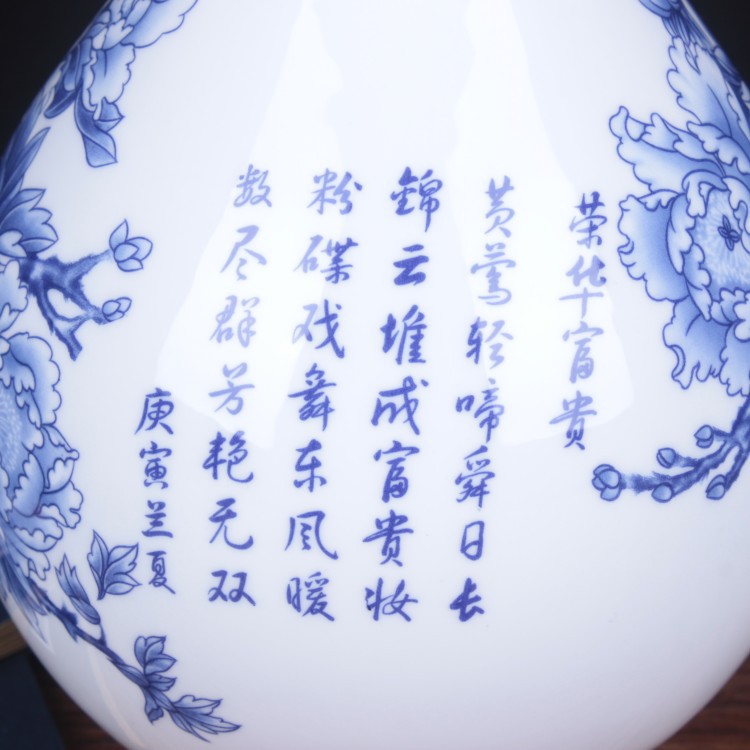 荣华富贵
黄莺轻啼舜日长
锦云堆成富贵妆
粉碟戏舞东风暖
数尽群芳艳无双
庚寅兰夏